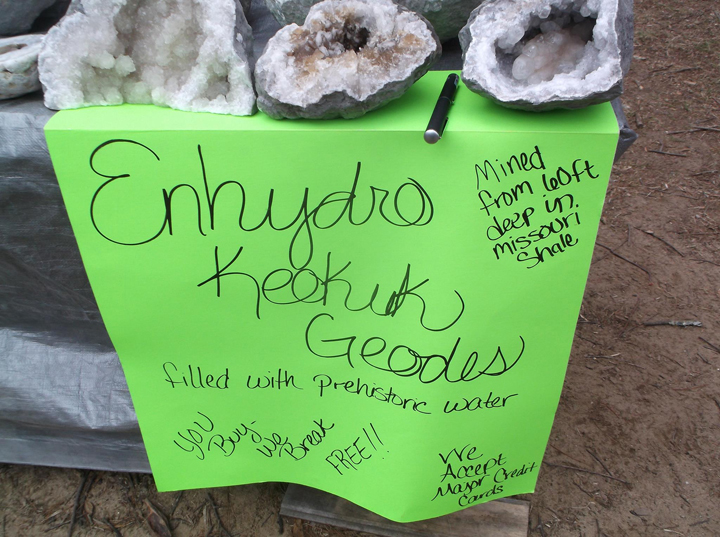 Enhydro
Keokuk
Geodes
Mined
from 60ft
deep in
missouri
Shale
filled with Prehistoric water
You
Buy-
We Break
FREE!!
We
Accept
Major Credit
Cards